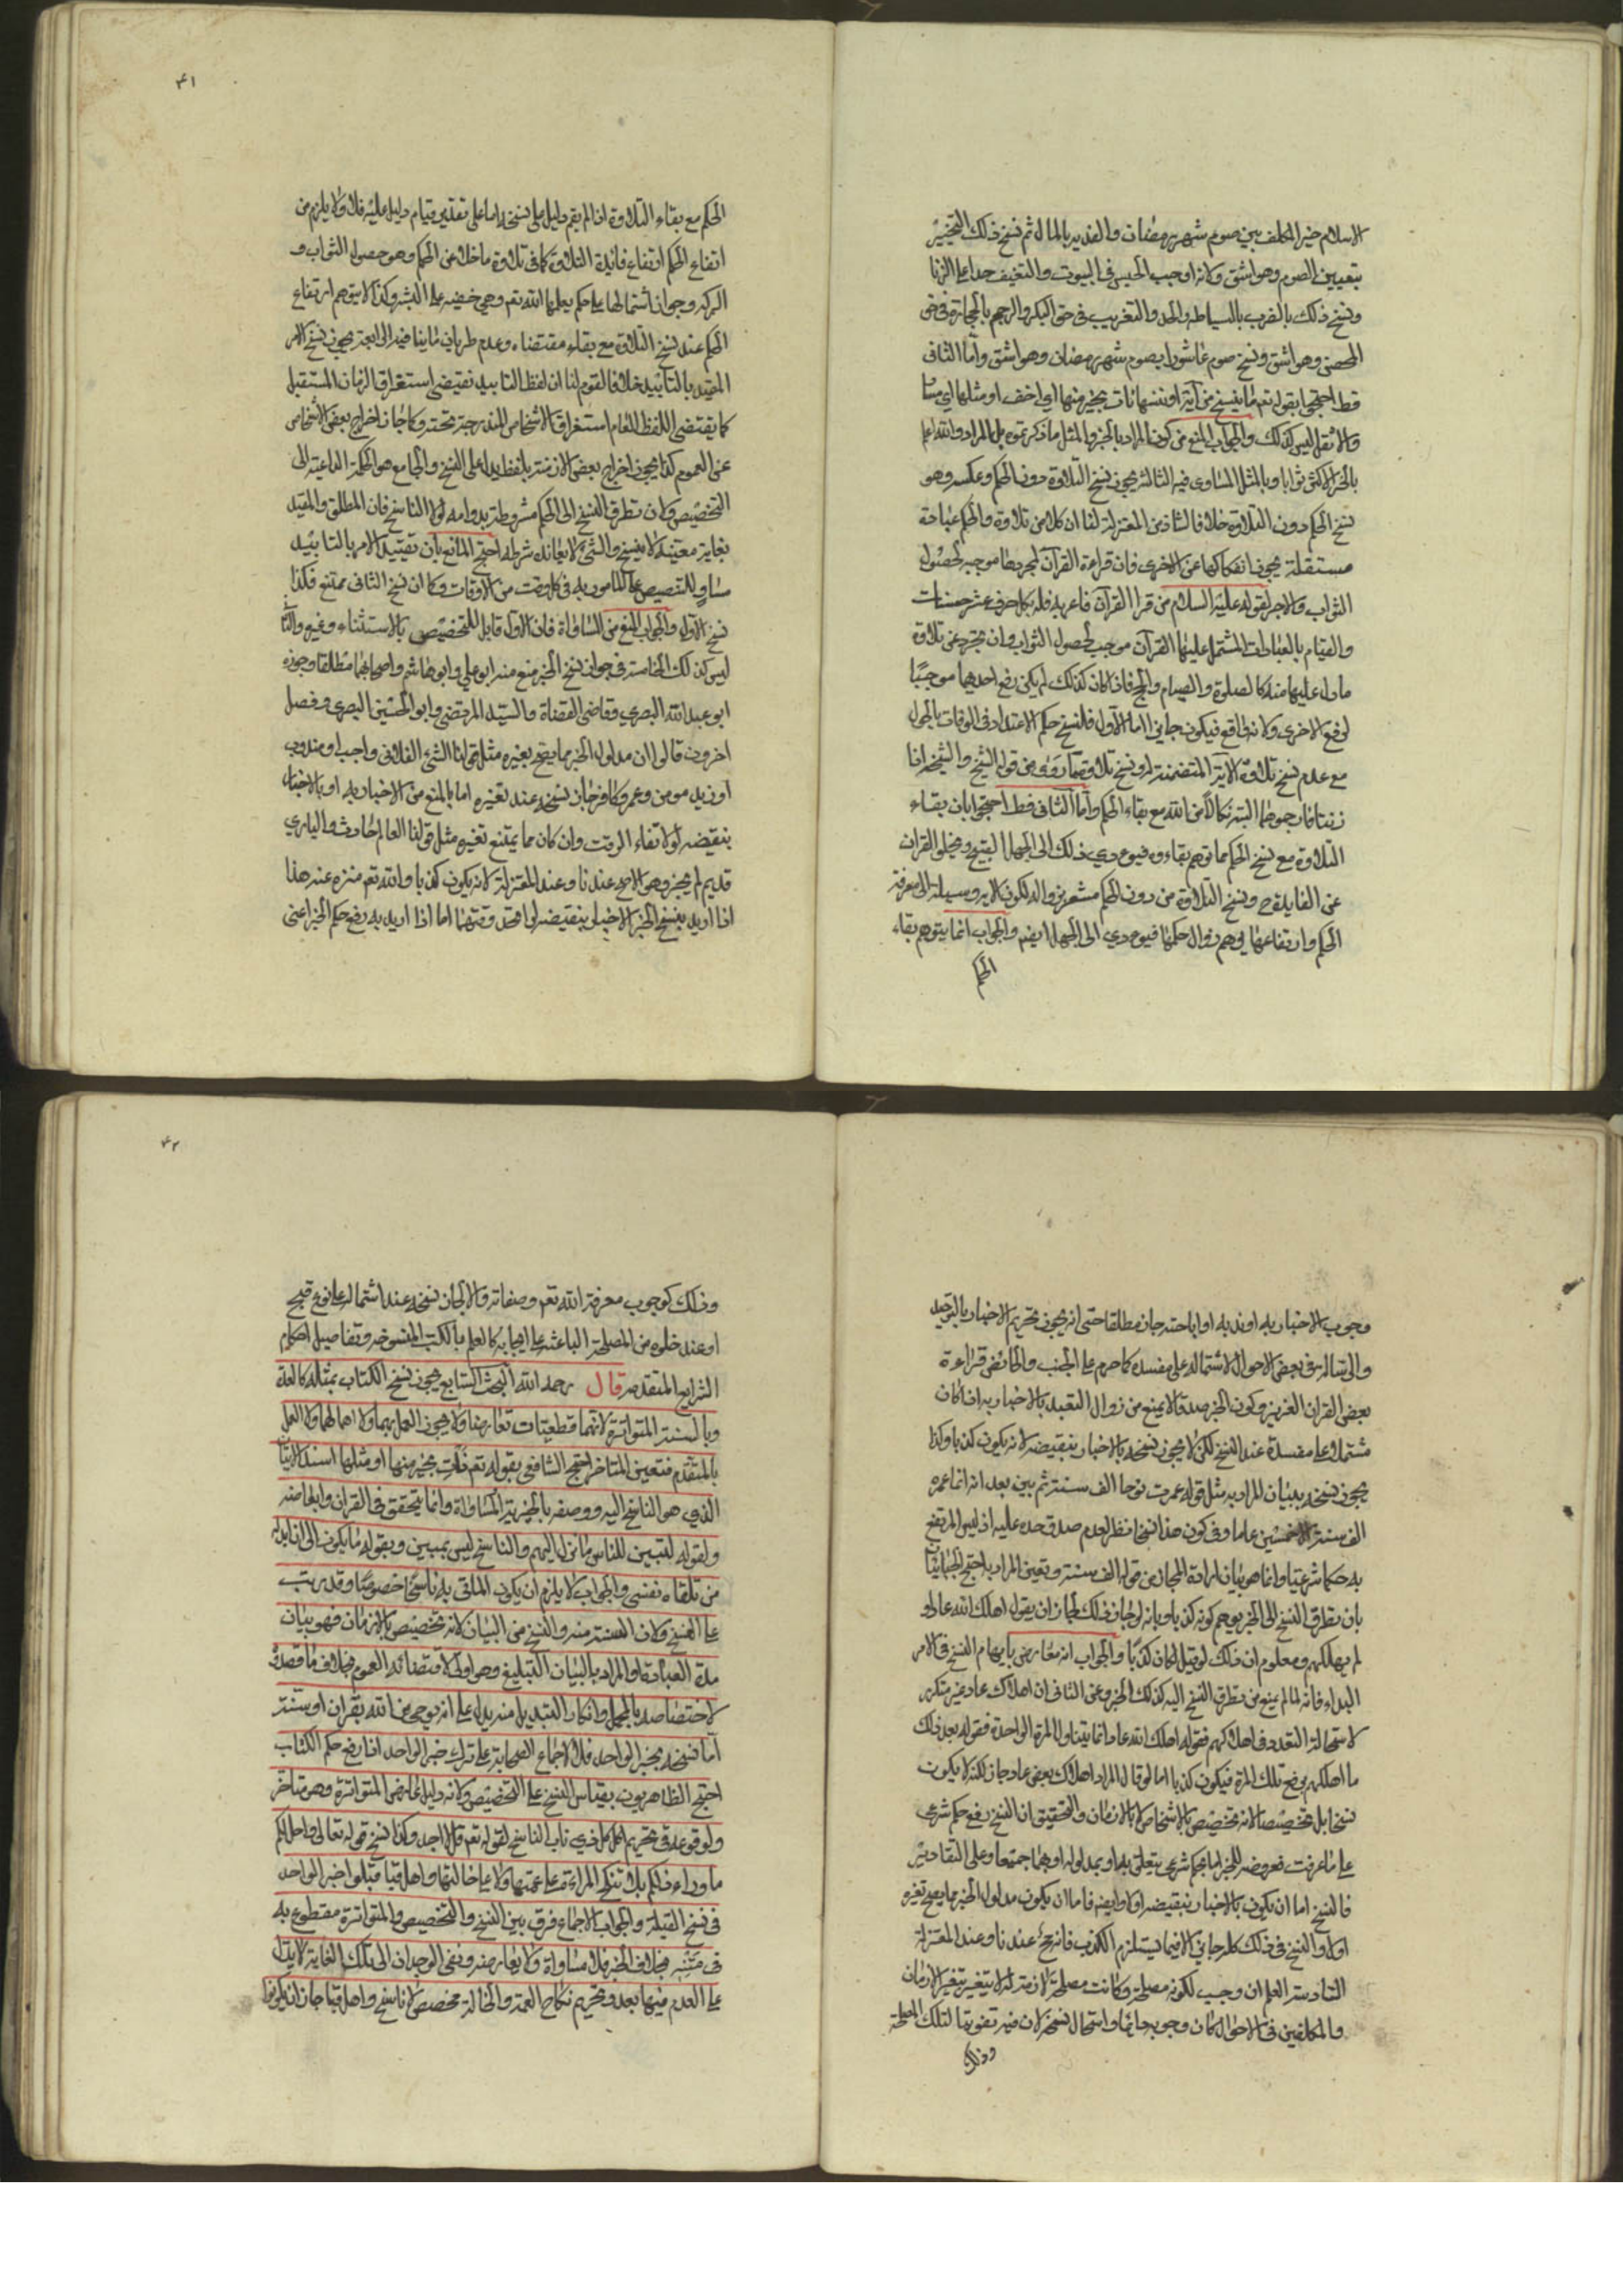 الاسلام خير المكلف بين صوم شهر رمضان والفدية بالمال ثم نسخ ذلك التخيير
بتعيين الصوم وهو اشق وكانه اوجب الحبس في البيوت والتعنيف حدا على الزنا
ونسخ ذلك بالضرب بالسياط والجلد والتغريب في حق البكر والرجم بالحجارة في حق
المحصن وهو اشق ونسخ صوم عاشورا بصوم شهر رمضان وهو اشق واما الثاني
فقط احتج بقوله تعم ما ننسخ من آية او ننسها نات بخير منها اي اخف او مثلها اي مساو
والاثقل ليس كذلك والجواب المنع من كون المراد بالخير والمثل ما ذكرتموه بل المراد والله اعلم
بالخير الاكثر ثوابا وبالمثل المساوي فيه الثالث يجوز نسخ التلاوة دون الحكم وعكسه وهو
نسخ الحكم دون التلاوة خلافا لشاذ من المعتزلة لنا ان كلا من تلاوة والحكم عبادة
مستقلة يجوز انفكاكها عن الاخرى فان قراءة القرآن لمجردها موجبه لحصول
الثواب والاجر لقوله عليه السلام من قرا القرآن فاعربه فله بكل حرف عشر حسنات
والقيام بالعبادات المشتمل عليها القرآن موجب لحصول الثواب وان تجرد عن تلاوة
ما دل عليها منه كالصلوة والصيام والحج فاذا كان كذلك لم يكن رفع احديهما موجبًا
لرفع الاخرى ولانه واقع فيكون جايزا اما الاول فلنسخ حكم الاعتداد في الوفات بالحول
مع عدم نسخ تلاوة الآية المتضمنة له ونسخ تلاوة ما روي من قوله الشيخ والشيخة اذا
زنتا فارجموهما البتة نكالا من الله مع بقاء الحكم واما الثاني فقط احتجوا بان بقاء
التلاوة مع نسخ الحكم مما توهم بقاءه فيؤدي ذلك الى الجهل القبيح ويخلو القران
عن الفايدة ونسخ التلاوة من دون الحكم مشعر بزواله لكون الآية وسيلة الى معرفة
الحكم وارتفاعها يوهم زوال حكمها فيؤدي الى الجهل ايضا والجواب انما يتوهم بقاء
الحكم
٤١
الحكم مع بقاء التلاوة ان لم يقم دليل على نسخه اما على تقدير قيام دليل عليه فلا ولا يلزم من
انتفاع الحكم ارتفاع فائدة التلاوة كما في تلاوة ما خلا عن الحكم وهو حصول الثواب و
البركة وجواز اشتمالها على حكم يعلمها الله تعم وهي خفيه على البشر وكذا لا يتوهم ارتفاع
الحكم عند نسخ التلاوة مع بقاء مقتضاه وعدم طريان ما ينافيه الرابعة يجوز نسخ الامر
المقيد بالتأبيد خلافا لقوم لنا ان لفظ التابيد تقتضي استغراق الزمان المستقبل
كما يقتضي اللفظ العام استغراق الاشخاص المندرجة تحته وكما جاز اخراج بعض الاشخاص
عن العموم كذا يجوز اخراج بعض الازمنة بلفظ يدل على النسخ والجامع هو الحكمة الداعية الى
التخصيص ولان تطرق النسخ الى الحكم مشروطة بدوامه لولا الناسخ فان المطلق والمقيد
بغاية معينة لا ينسخ والشيء لا يعاند شرطه احتج المانع بان تقييد الامر بالتابيد
مساو للتنصيص على المأمور به في كل وقت من الاوقات وكما ان نسخ الثاني ممتنع فكذا
نسخ الاول والجواب المنع من المساواة فان الاول قابل للتخصيص بالاستثناء وغيره والثاني
ليس كذلك الخامسة في جواز نسخ الخبر منع منه ابو علي وابو هاشم واصحابهما مطلقا وجوزه
ابو عبد الله البصري وقاضي القضاة والسيد المرتضى وابو الحسين البصري وفصل
اخرون قالوا ان مدلول الخبر مما يصح تغيره مثل قولنا الشئ الفلاني واجب او مندوب
او زيد مومن وعمرو كافر جاز نسخه عند تغيره اما بالمنع من الاخبار به او بالاخبار
بنقيضه لولا تفاء الوقت وان كان مما يمتنع تغيره مثل قولنا العالم حادث والباري
قديم لم يجز وهو الاصح عندنا وعند المعتزلة لانه يكون كذبا والله تعم منزه عنه هذا
اذا اريد بنسخ الخبر الاخبار بنقيضه لو اتحد وقتهما اما اذا اريد به رفع حكم الخبر اعني
وجوب الاخبار به او ندبه او اباحته جاز مطلقا حتى انه يجوز تحريم الاخبار بالتوحيد
والرسالة في بعض الاحوال لاشتماله على مفسدة كما حرم على الجنب والحائض قراءة
بعض القران العزيز وكون الخبر صدقا لا يمنع من زوال التعبد بالاخبار به اذا كان
مشتملا على مفسدة عند النسخ لكن لا يجوز نسخه بالاخبار بنقيضه لانه يكون كذبا وكذا
يجوز نسخه ببيان المراد به مثل قوله عمرت نوحا الف سنة ثم بين بعد انه انما عمره
الف سنة الا خمسين عاما وفي كون هذا نسخا نظر لعدم صدق حده عليه اذ ليس المرتفع
به حكما شرعيا وانما هو بيان لارادة المجاز من قوله الف سنة وتعين المراد به احتج الجبائيان
بان تطرق النسخ الى الخبر يوهم كونه كذبا وبانه لو جاز ذلك لجاز ان يقول اهلك الله عادا و
لم يهلكهم ومعلوم ان ذلك لو قيل لكان كذبًا والجواب انه معارض بايهام النسخ في الامر
البداء فانه لما لم يمنع من تطرق النسخ اليه كذلك الخبر وعن الثاني ان اهلاك عاد غير متكرر
لاستحالة التعدد في اهلاكهم فقوله اهلك الله عادا انما يتناول المرة الواحدة فقوله بعد ذلك
ما اهلكهم يرفع تلك المرة فيكون كذبا اما لو قال المراد اهلاك بعض عاد جاز لكنه لا يكون
نسخا بل تخصيصا لانه تخصيص بالاشخاص لا بالازمان والتحقيق ان النسخ رفع حكم شرعي
على ما عرفت فعروضه للخبر اما لحكم شرعي يتعلق به او بمدلوله او بهما جميعا وعلى التقادير
فالنسخ اما ان يكون بالاخبار بنقيضه اولا وايضا فاما ان يكون مدلول الخبر مما يصح تغيره
اولا والنسخ في ذلك كله جايز الا فيما يستلزم الكذب فانه قبيح عندنا وعند المعتزلة
السادسة العلم ان وجب لكونه مصلحة وكانت مصلحة لازمة له لا يتغير بتغير الازمان
والمكلفين في الاحوال كان وجوبه دائما واستحال نسخه لان فيه تفويتا لتلك المصلحة
وذلك
٤٢
وذلك كوجوب معرفة الله تعم وصفاته والا لجاز نسخه عند اشتماله على نوع قبح
او عند خلوه من المصلحة الباعثة على ايجابه كالعلم بالكتب المنسوخه وتفاصيل احكام
الشرايع المتقدمة قال رحمه الله البحث السابع يجوز نسخ الكتاب بمثله كالعدة
وبالسنة المتواترة لانهما قطعيات تعارضا ولا يجوز العمل بهما ولا اهمالهما ولا العمل
بالمتقدم فتعين المتاخر احتج الشافعي بقوله تعم نأت بخير منها او مثلها اسند الاتيان
الذي هو الناسخ اليه ووصفه بالخيرية والمساواة وانما يتحقق في القران وايضا ضه
ولقوله لتبين للناس ما نزل اليهم والناسخ ليس بمبين وبقوله ما يكون لي ان ابدله
من تلقاء نفسي والجواب لا يلزم ان يكون الماتي به ناسخا خصوصًا وقد رتب
على النسخ ولان السنة منه والنسخ من البيان لانه تخصيص بالازمان فهو بيان
مدة العبادة او المراد بالبيان التبليغ وهو اولى لاقتضائه العموم بخلاف ما قصدتم
لاختصاصه بالمجمل وانكار التبديل منه يدل على انه يوحى من الله بقران او سنة
اما نسخه بخبر الواحد فلا لاجماع الصحابة على ترك خبر الواحد اذا رفع حكم الكتاب
احتج الظاهريون بقياس النسخ على التخصيص ولانه دليل عارض المتواترة وهو متاخر
ولوقوعه في تحريم اكل كل ذي ناب الناسخ لقوله تعم قل لا اجد وكذا نسخ قوله تعالى واحل لكم
ما وراء ذلكم بلا تنكح المراة على عمتها ولا على خالتها واهل قبا قبلوا خبر الواحد
في نسخ القبلة والجواب الاجماع فرق بين النسخ والتخصيص والمتواترة مقطوع به
في مَتْنِه بخلاف الخبر فلا مساواة ولا يعارضه ونفى الوجدان الى تلك الغاية لا يدل
على العدم فيما بعد وتحريم نكاح العمة والخالة مخصص لا ناسخ واهل قبا جاز ان يكونوا